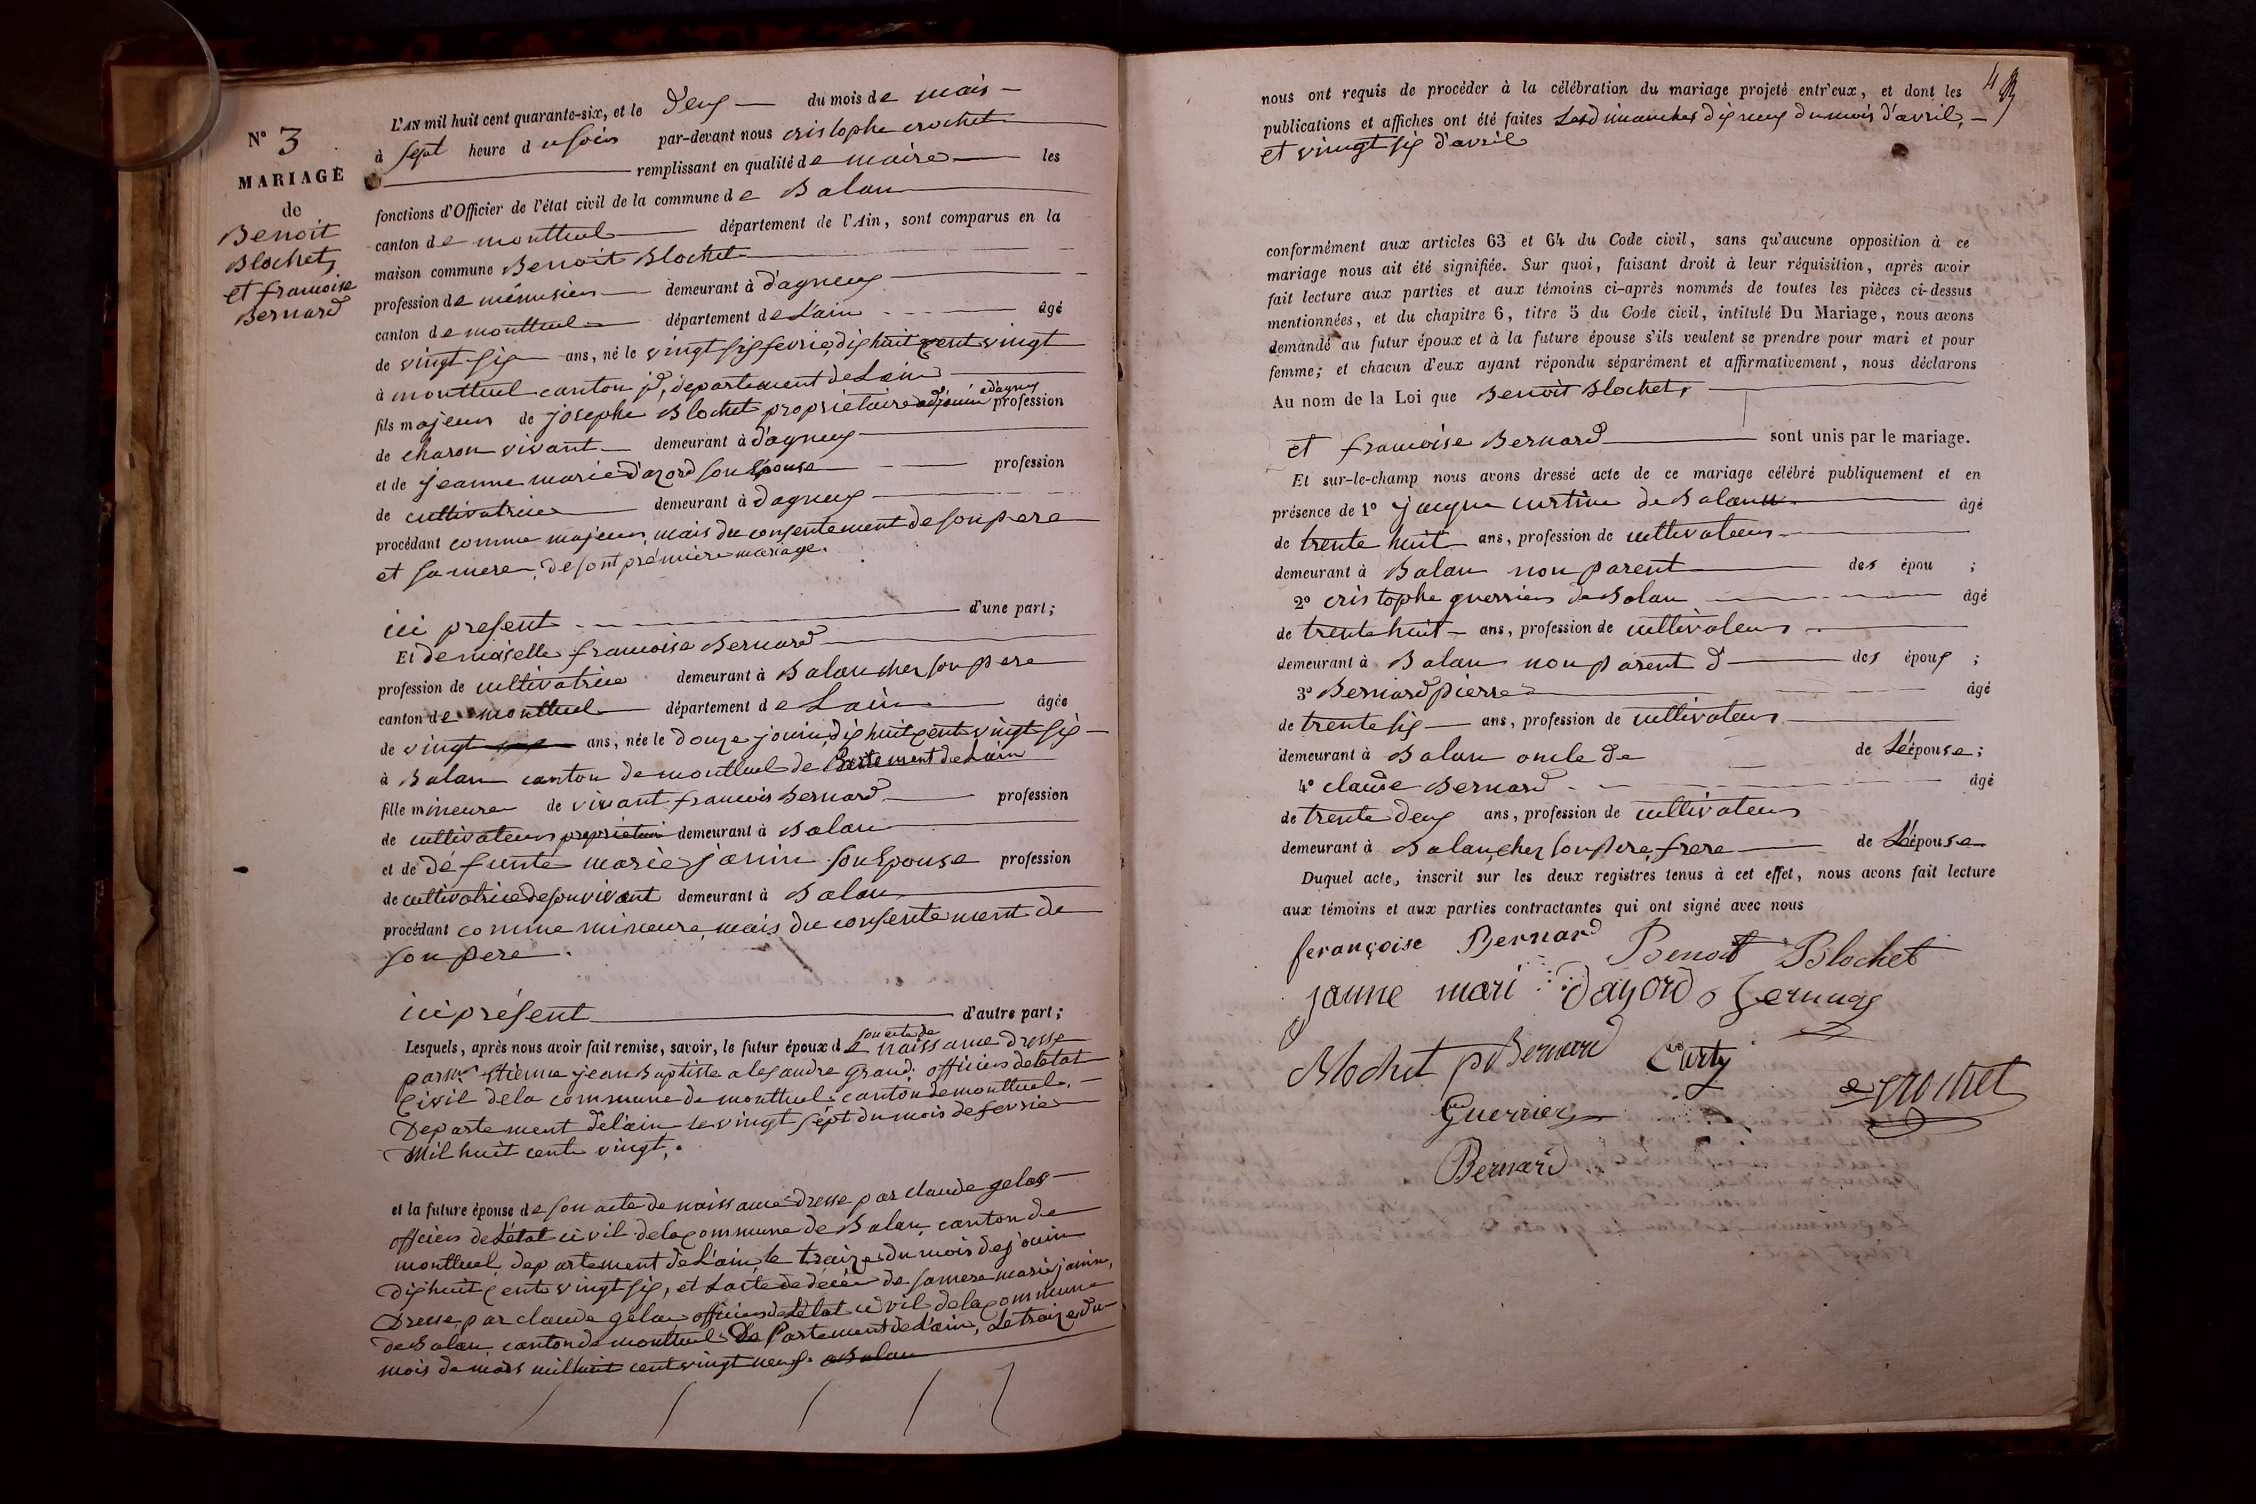 N° 3
MARIAGE
de
Benoit
Blochet,
et francoise
Bernard
L'AN mil huit cent quarante-six, et le deux du mois de mais
à sept heure d u soir par-devant nous cristophe crochet
remplissant en qualité de maire les
fonctions d'Officier de l'état civil de la commune de Balan
canton de montluel département de l'Ain, sont comparus en la
maison commune Benoit Blochet
profession de ménusier demeurant à d'agneux
canton de montluel département de L'ain âgé
de vingt six ans, né le vingt six fevrie, dix huit cent vingt
à montluel canton id, departement de Lain
fils majeur de josephe Blochet propriétaire adjoin d'agneux profession
de charon vivant demeurant à d'agneux
et de jeanne marie d'azord son Epouse profession
de cultivatrice demeurant à dagneux
procédant comme majeur, mais du consentement de son pere
et sa mere, de sont prémière mariage.
ici present d'une part;
Et demaiselle francoise Bernard
profession de cultivatrice demeurant à Balan chez son pere
canton de montluel département de Lain âgée
de vingt ans, née le douze jouin, dix huit cent vingt six
à Balan canton de montluel departement de Lain
fille mineure de vivant francois Bernard profession
de cultivateur propriétair demeurant à Balan
et de défunte marie janin son Epouse profession
de cultivatrice de son vivant demeurant à Balan
procédant comme mineure, mais du consentement de
son pere.
ici présent d'autre part;
Lesquels, après nous avoir fait remise, savoir, le futur époux de son acte de naissance dresse
par mr. étienne jean Baptiste alexandre grand. officier de létat
civil de la commune de montluel. canton de montluel.
Departement de lain le vingt sépt du mois de fevrie
Mil huit cente vingt.
et la future épouse de son acte de naissance dresse par claude gelas
officier de L'état civil de la commune de Balan, canton de
montluel, departement de L'ain, le traize du mois de jouin
dix huit cente vingt six, et L'acte de décér de sa mere marie janin,
Dresse par claude gelas officier de L'état civil de la commune
de Balan canton de montluel De Partement de L'ain, Le traize du
mois de mars mil huit cent vingt neuf. a Balan
nous ont requis de procéder à la célébration du mariage projeté entr'eux, et dont les
publications et affiches ont été faites Les dimanches dix neuf du mois d'avril,
et vingt six d'avril
conformément aux articles 63 et 64 du Code civil, sans qu'aucune opposition à ce
mariage nous ait été signifiée. Sur quoi, faisant droit à leur réquisition, après avoir
fait lecture aux parties et aux témoins ci-après nommés de toutes les pièces ci-dessus
mentionnées, et du chapitre 6, titre 5 du Code civil, intitulé Du Mariage, nous avons
demandé au futur époux et à la future épouse s'ils veulent se prendre pour mari et pour
femme; et chacun d'eux ayant répondu séparément et affirmativement, nous déclarons
Au nom de la Loi que Benoit Blochet,
et francoise Bernard sont unis par le mariage.
Et sur-le-champ nous avons dressé acte de ce mariage célébré publiquement et en
présence de 1° jacque curtine de Balan âgé
de trente huit ans, profession de cultivateur
demeurant à Balan non parent des épou ;
2° cristophe guerrier de Balan âgé
de trente huit ans, profession de cultivateur
demeurant à Balan non parent d des époux ;
3° Bernard pierre âgé
de trente six ans, profession de cultivateur
demeurant à Balan oncle de de L'épouse;
4° claude Bernard âgé
de trente deux ans, profession de cultivateur
demeurant à Balan, chez son pere, frere de L'épouse
Duquel acte, inscrit sur les deux registres tenus à cet effet, nous avons fait lecture
aux témoins et aux parties contractantes qui ont signé avec nous
ferançoise Bernard Benoit Blochet
janne mari dazord Bernard
Blochet pBernard Curty
Guerrier crochet
Bernard